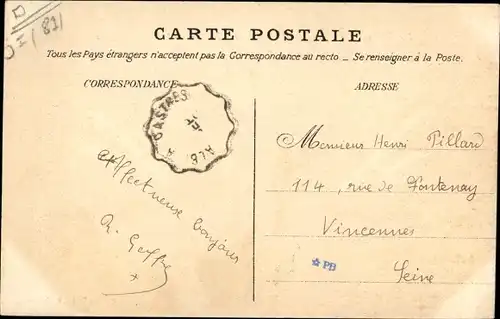 (81)
CARTE POSTALE
Tous les Pays étrangers n'acceptent pas la Correspondance au recto _ Se renseigner à la Poste.
CORRESPONDANCE
ADRESSE
CASTRES
ALB
Monsieur Henri Pillard
114, rue de Fontenay
Vincennes
Seine
affectueuse bonjour
PB